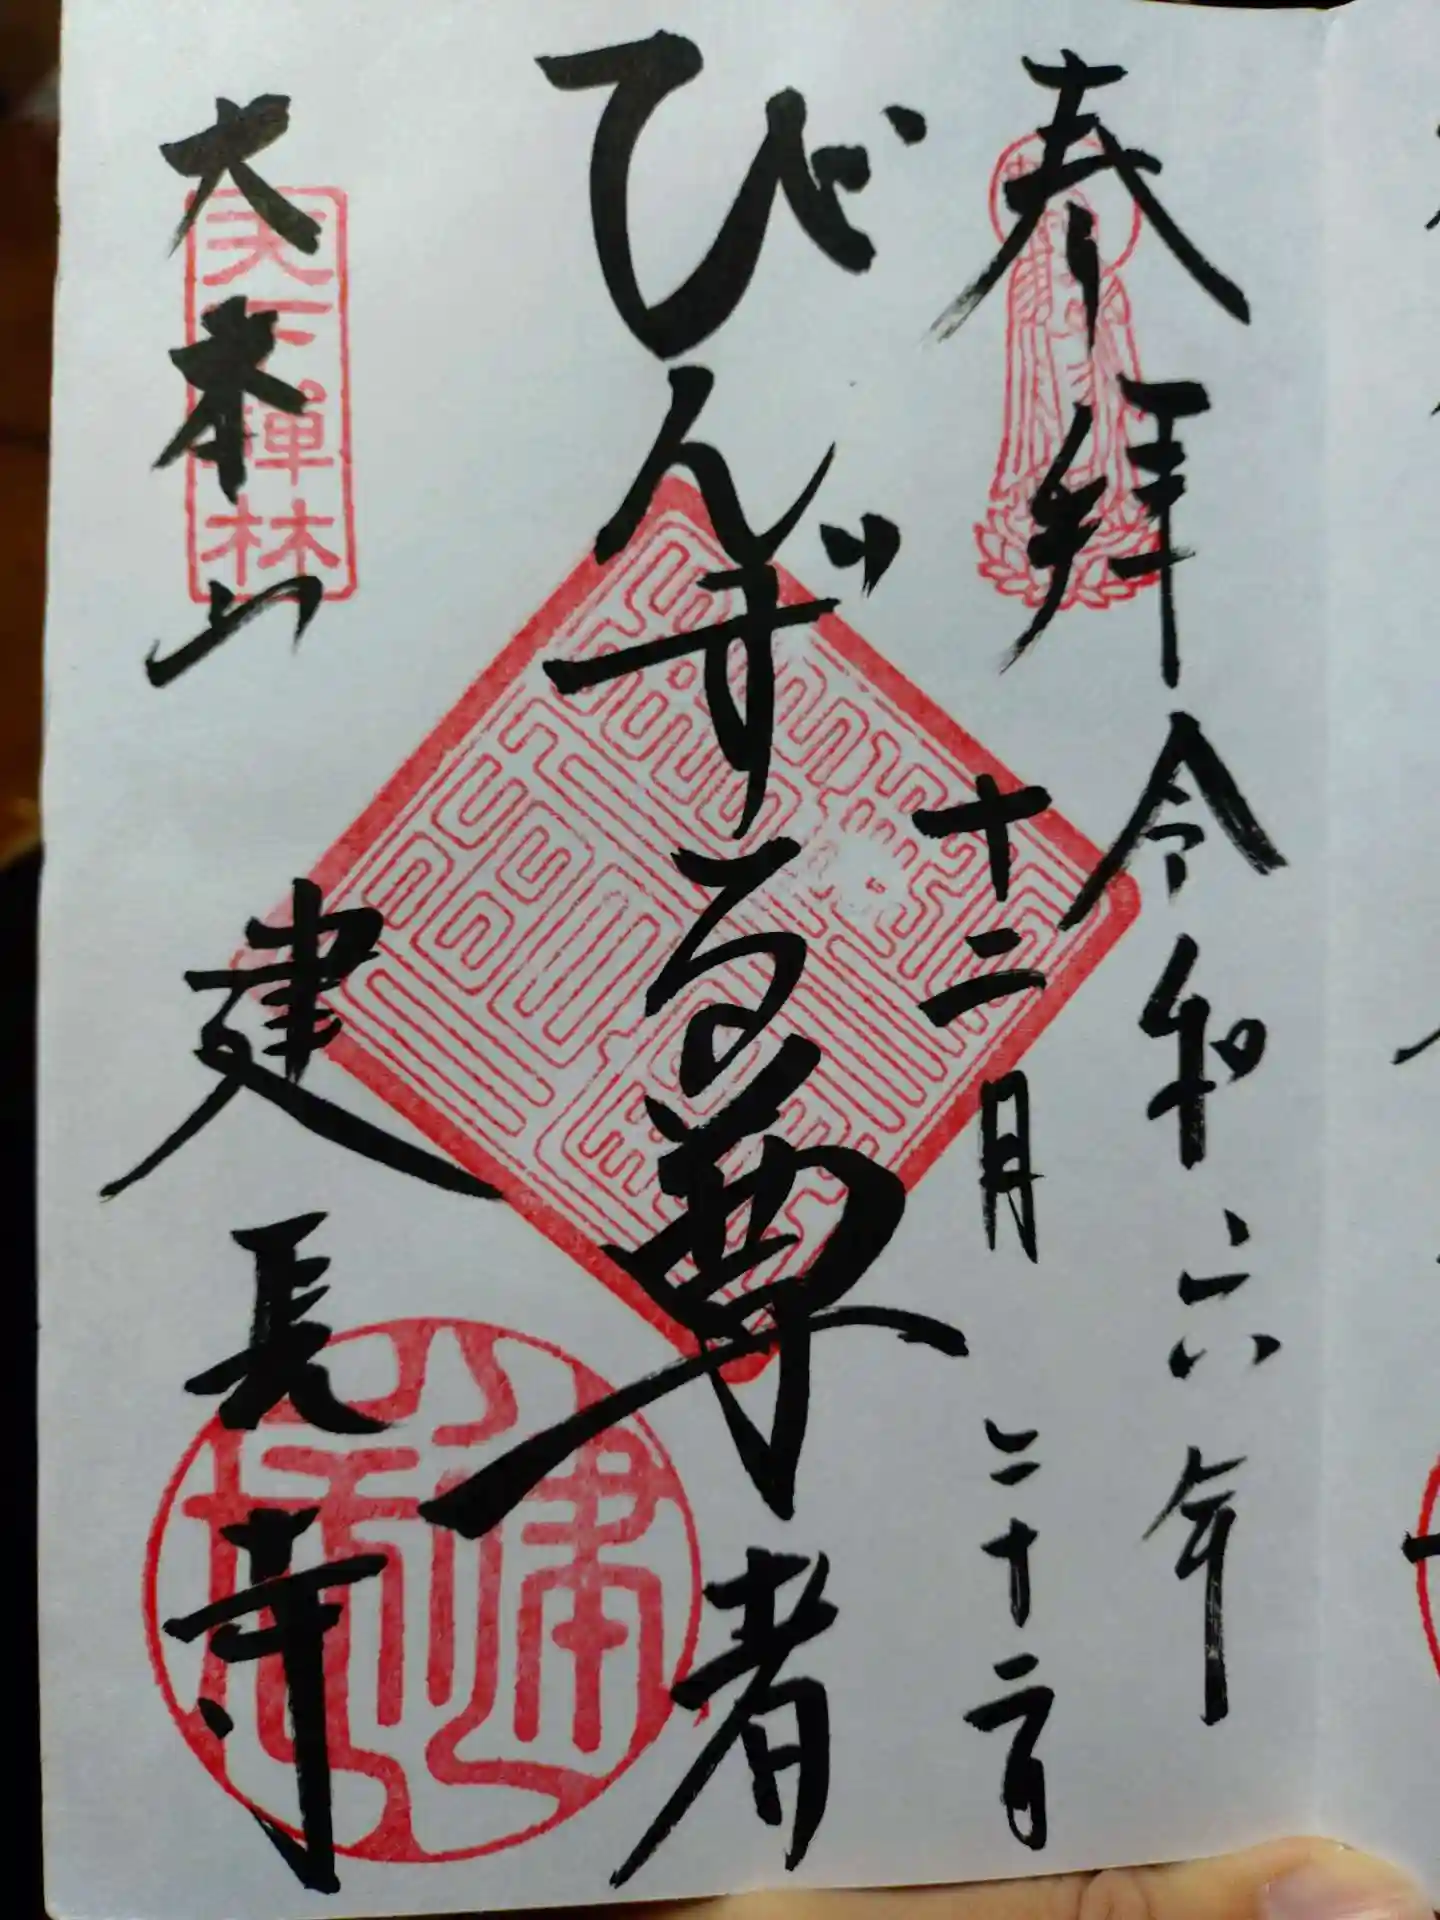 奉拝
令和六年
十二月二十二日
びんずる尊者
大本山
建長寺
天下禅林